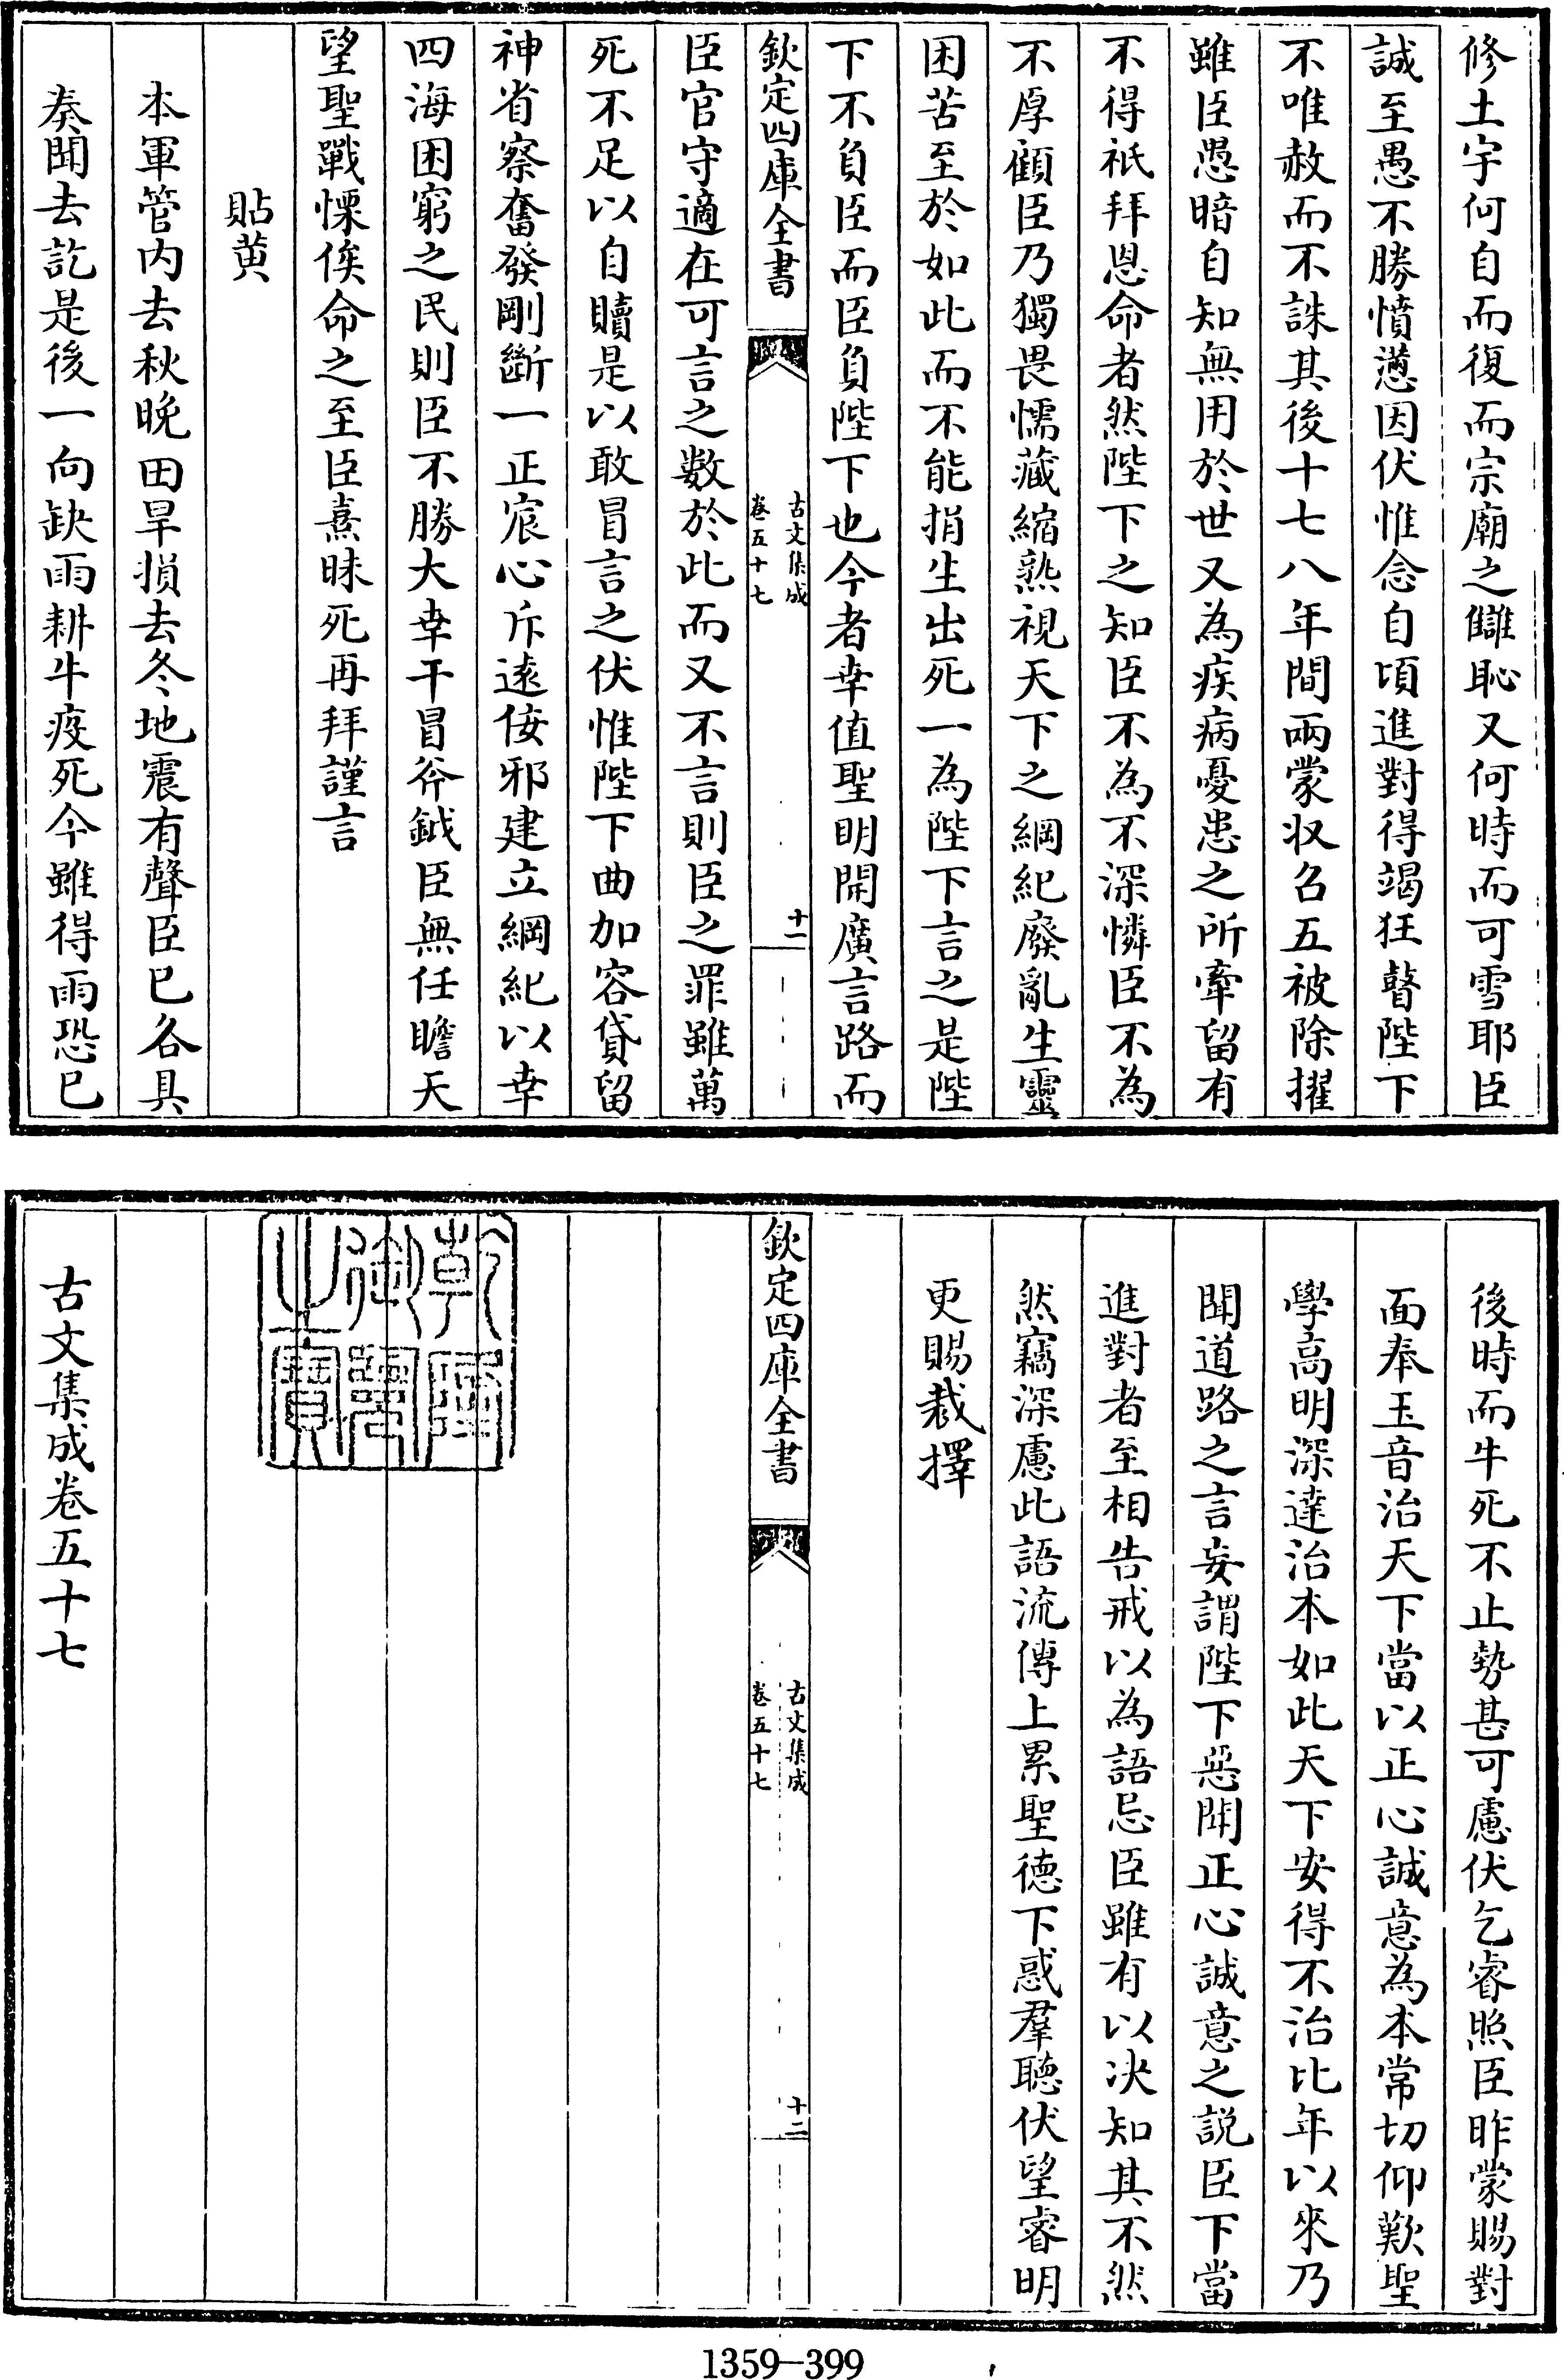 修土宇何自而復而宗廟之讎恥又何時而可雪耶臣
誠至愚不勝憤懣因伏惟念自頃進對得竭狂瞽陛下
不唯赦而不誅其後十七八年間兩蒙収召五被除擢
雖臣愚暗自知無用於世又為疾病憂患之所牽留有
不得祇拜恩命者然陛下之知臣不為不深憐臣不為
不厚顧臣乃獨畏懦藏縮熟視天下之綱紀廢亂生靈
困苦至於如此而不能捐生出死一為陛下言之是陛
下不負臣而臣負陛下也今者幸值聖明開廣言路而
欽定四庫全書
古文集成
卷五十七
十一
臣官守適在可言之數於此而又不言則臣之罪雖萬
死不足以自贖是以敢冒言之伏惟陛下曲加容貸留
神省察奮發剛斷一正宸心斥遠佞邪建立綱紀以幸
四海困窮之民則臣不勝大幸干冒斧鉞臣無任瞻天
望聖戰慄俟命之至臣熹昧死再拜謹言
貼黄
本軍管内去秋晚田旱損去冬地震有聲臣已各具
奏聞去訖是後一向缺雨耕牛疫死今雖得雨恐已
後時而牛死不止勢甚可慮伏乞睿照臣昨蒙賜對
面奉玉音治天下當以正心誠意為本常切仰歎聖
學高明深達治本如此天下安得不治比年以來乃
聞道路之言妄謂陛下惡聞正心誠意之説臣下當
進對者至相告戒以為語忌臣雖有以决知其不然
然竊深慮此語流傳上累聖德下惑羣聽伏望睿明
更賜裁擇
欽定四庫全書
古文集成
卷五十七
十二
乾隆御覽之寶
古文集成卷五十七
1359-399